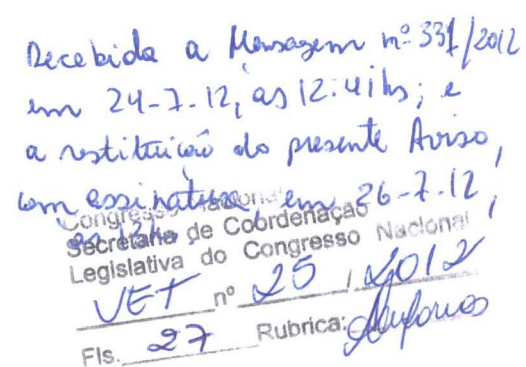 Recebida a Mensagem nº 331/2012
em 24-7-12, às 12:41hs; e
a restituição do presente Aviso,
com assinatura, em 26-7-12,
Congresso Nacional
Secretaria de Coordenação
Legislativa do Congresso Nacional
VET nº 25 / 2012
Fls. 27 Rubrica: